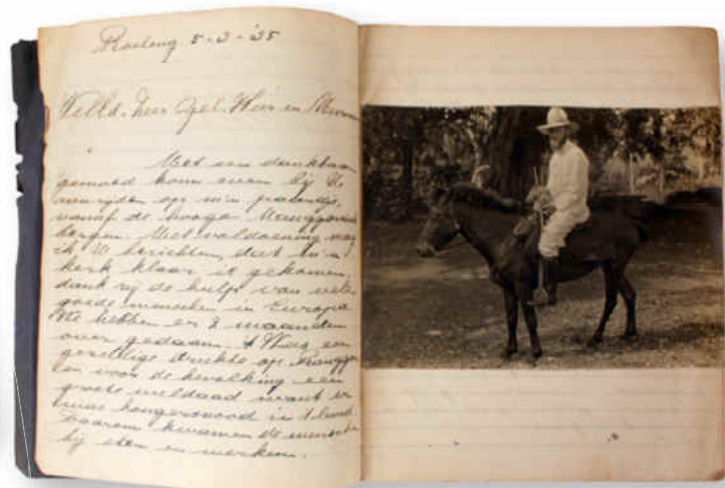 Ruteng 5-3-'35
Weled. Heer Gel. Heer en Mevrouw
Met een dankbaar
gemoed kom even bij U
aanrijden op m'n paardje,
vanaf de hooge Manggaraische
bergen. Met voldoening mag
ik U berichten, dat m'n
kerk klaar is gekomen,
dank zij de hulp van vele
goede menschen in Europa
We hebben er 7 maanden
over gedaan. 't Was een
gezellige drukte op
en voor de bevolking een
groote weldaad want er
was hongersnood in 't land
Daarom kwamen de menschen
bij eten en werken.